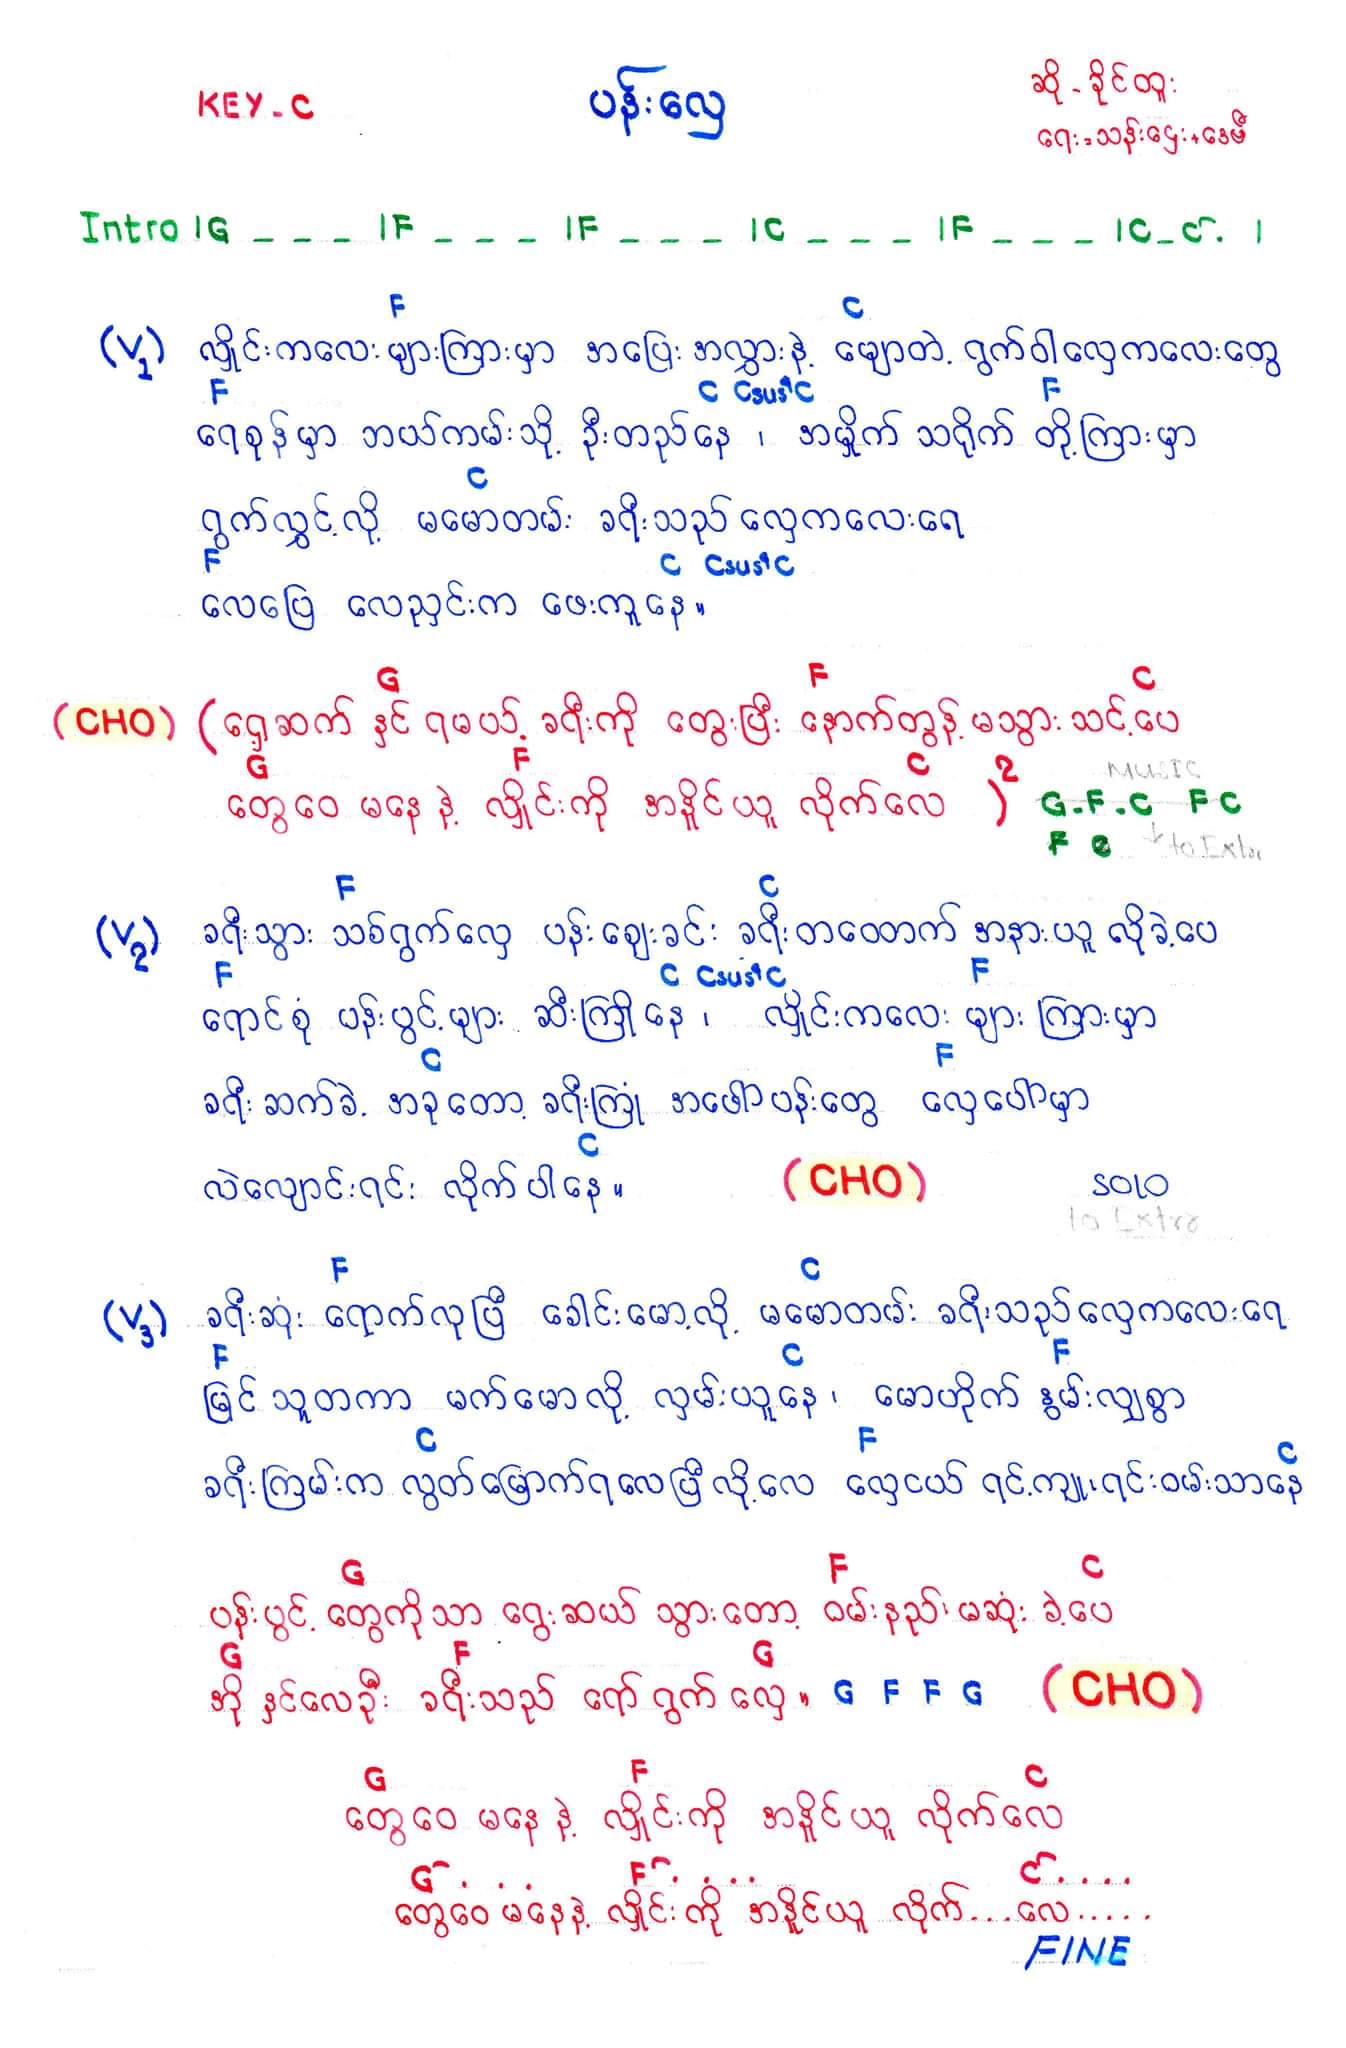 KEY - C
ပန်းလှေ
ဆို - ခိုင်ထူး
ရေး = သန်းဌေး + ဒေမီ
Intro |G _ _ _ |F _ _ _ |F _ _ _ |C _ _ _ |F _ _ _ |C _ C . |
F C
(V1) လှိုင်းကလေး များကြားမှာ အပြေး အလွှားနဲ့ မျောတဲ့ ရွက်ဝါလှေကလေးတွေ
F C Csus4 C F
ရေစုန်မှာ ဘယ်ကမ်းသို့ ဦးတည်နေ ၊ အမှိုက် သရိုက် တို့ကြားမှာ
C
ရွက်လွှင့်လို့ မမောတမ်း ခရီးသည် လှေကလေးရေ
F C Csus4 C
လေပြေ လေညှင်းက ဖေးကူနေ ။
G F C
(CHO) (ရှေ့ဆက် နှင် ရမယ့် ခရီးကို တွေးပြီး နောက်တွန့် မသွား သင့်ပေ
G F C
တွေဝေ မနေ နဲ့ လှိုင်းကို အနိူင်ယူ လိုက်လေ )2
MUSIC
G - F - C F C
F C to Extra
F C
(V2) ခရီးသွား သစ်ရွက်လှေ ပန်းဈေးခင်း ခရီးတထောက် အနားယူ လိုခဲ့ပေ
F C Csus4 C F
ရောင်စုံ ပန်းပွင့်များ ဆီးကြိုနေ ၊ လှိုင်းကလေး များ ကြားမှာ
C F
ခရီး ဆက်ခဲ့ အခုတော့ ခရီးကြုံ အဖေါ်ပန်းတွေ လှေပေါ်မှာ
C
လဲလျောင်းရင်း လိုက်ပါနေ ။ (CHO) SOLO
to Extra
F C
(V3) ခရီးဆုံး ရောက်လုပြီ ခေါင်းမော့လို့ မမောတမ်း ခရီးသည်လှေကလေးရေ
F C F
မြင်သူတကာ မက်မောလို့ လှမ်းယူနေ ၊ မောဟိုက် နွမ်းလျှစွာ
C F C
ခရီးကြမ်းက လွတ်မြောက်ရလေပြီလို့လေ လှေငယ် ရင့်ကျူးရင်းဝမ်းသာနေ
G F C
ပန်းပွင့် တွေကိုသာ ရွေးဆယ် သွားတော့ ဝမ်းနည်းမဆုံး ခဲ့ပေ
G F G
အို နှင်လေဦး ခရီးသည် ရော်ရွက် လှေ ။ G F F G (CHO)
G F C
တွေဝေ မနေ နဲ့ လှိုင်းကို အနိူင်ယူ လိုက်လေ
G . . . F . . . . C . . . .
တွေဝေ မနေနဲ့ လှိုင်းကို အနိူင်ယူ လိုက်...လေ.....
FINE